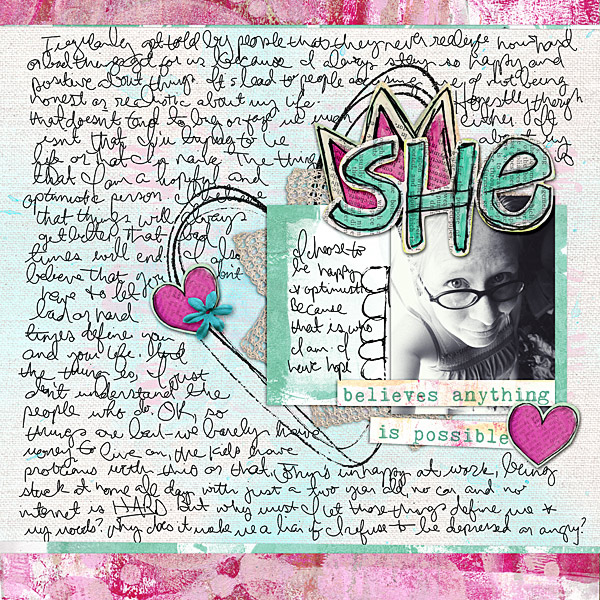 I regularly get told by people that they never realize how hard
or bad things get for us because I always stay so happy and
positive about things. It's lead to people accusing me of not being
honest or realistic about my life. Honestly though
that doesn't tend to be or for me much either. It
isn't that I'm trying to lie about my
life or that I'm naive. The thing is
that I am a hopeful and
optimistic person. I believe
that things will always
get better, that bad
times will end. I also
believe that you don't
have to let
bad or hard
times define you
and your life. And
the thing is, I just
don't understand the
people who do. OK, so
things are bad - we barely have
money to live on, the kids have
problems with this or that, unhappy at work, being
stuck at home all day with just a two year old no car and no
internet is HARD. But why must I let those things define me &
my moods? Why does it make me a liar if I refuse to be depressed or angry?
SHe
I choose to
be happy
& optimistic
because
that is who
I am. I
have hope
believes anything
is possible